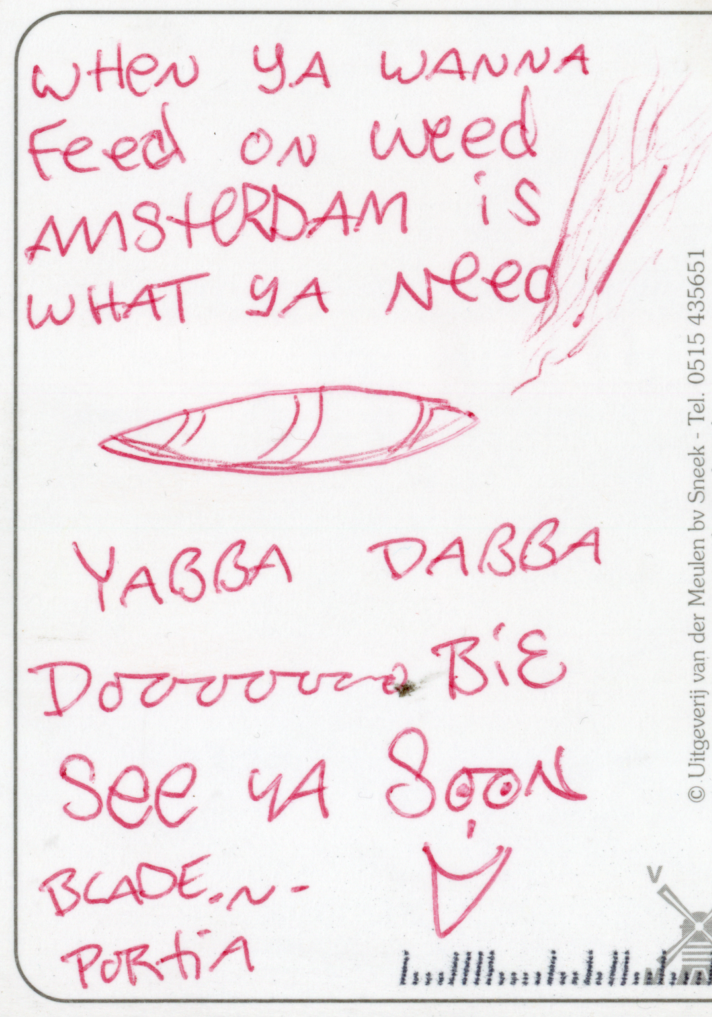 WHEN YA WANNA
Feed ON weed
AMSTERDAM iS
WHAT YA NEED
YABBA DABBA
Dooooooo BiE
See YA SOON
BLADE-N-
PORTiA
© Uitgeverij van der Meulen bv Sneek - Tel. 0515 435651
V